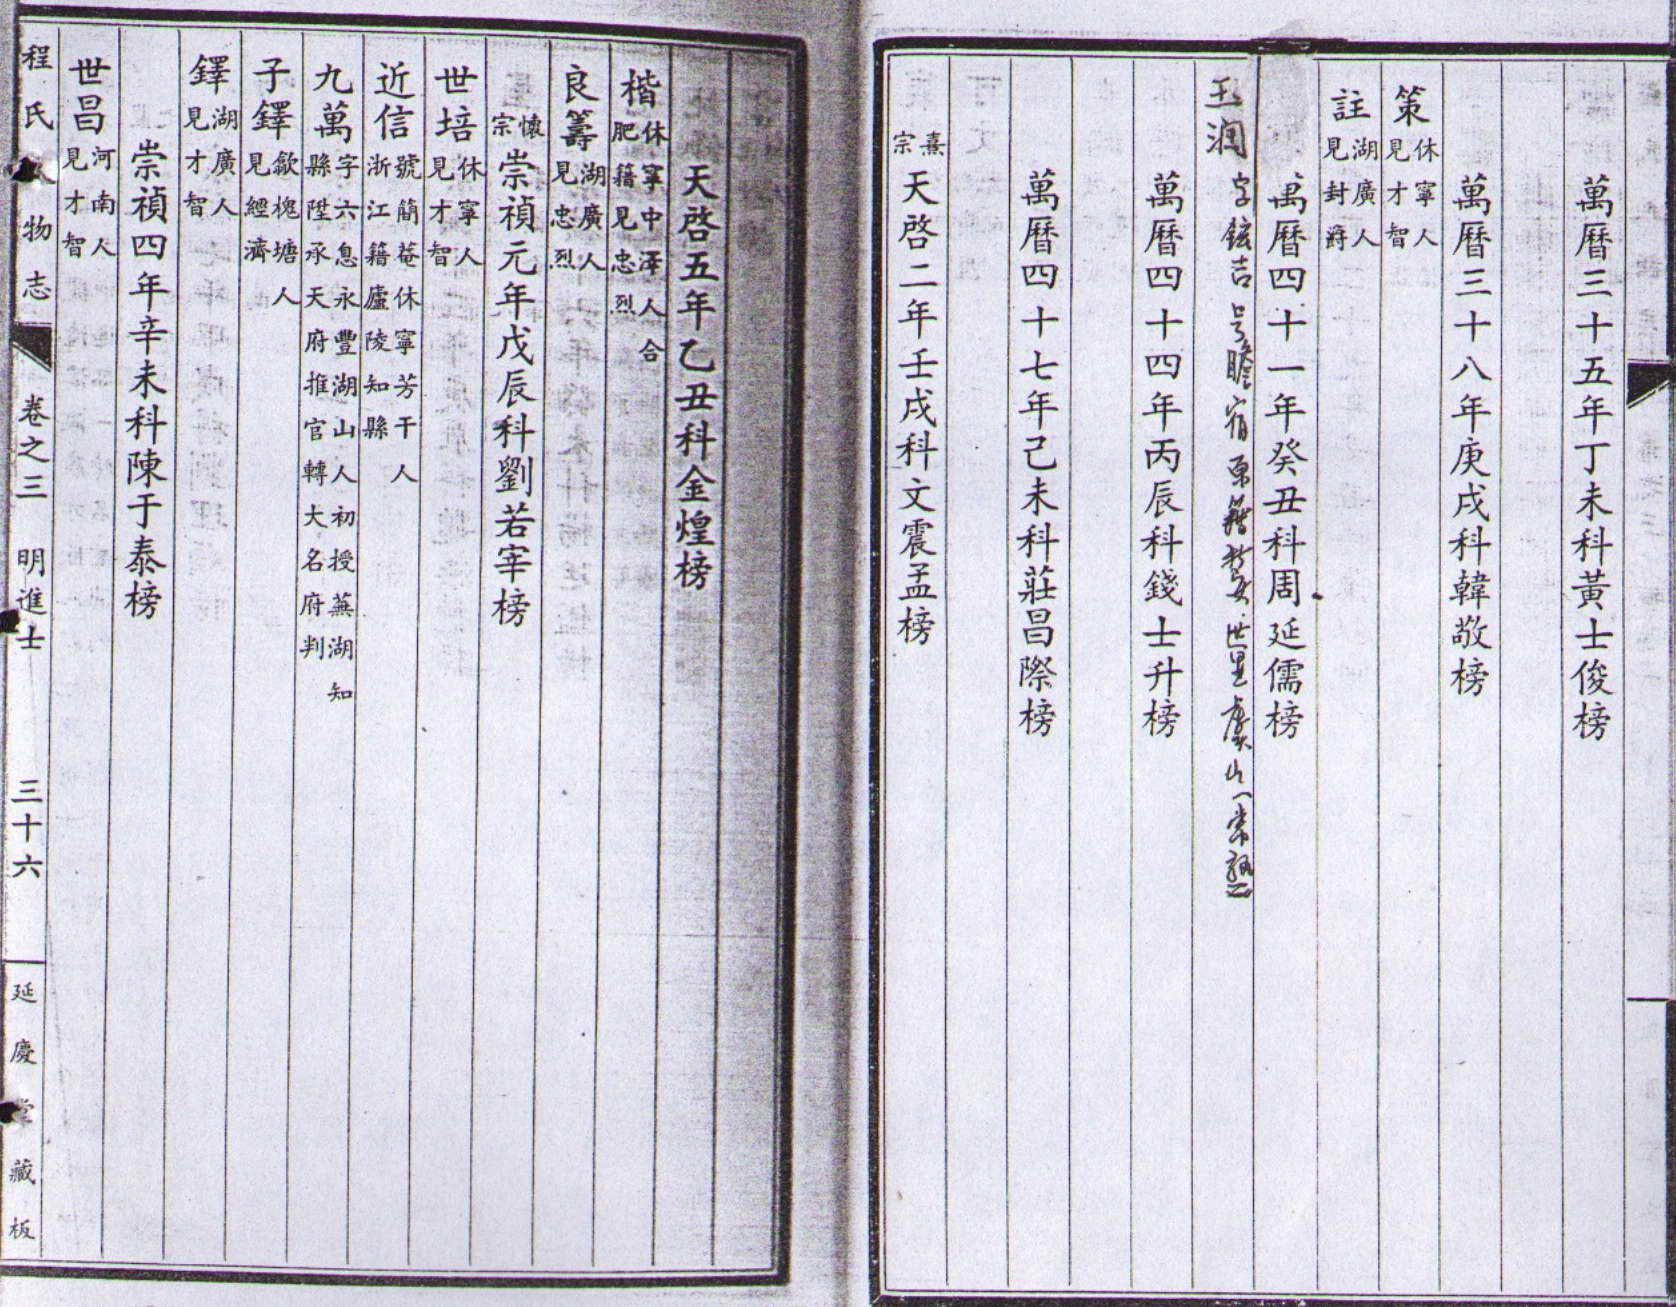 萬曆三十五年丁未科黃士俊榜
萬曆三十八年庚戌科韓敬榜
策 休寧人見才智
註 湖廣人見封爵
萬曆四十一年癸丑科周延儒榜
玉润 字鉉吉 号瞻宿 原籍 世里虞山(常熟
萬曆四十四年丙辰科錢士升榜
萬曆四十七年己未科莊昌際榜
熹宗 天啓二年壬戌科文震孟榜
天啓五年乙丑科金煌榜
楷 休寧中澤人合肥籍見忠烈
良籌 湖廣人見忠烈
懷宗 崇禎元年戊辰科劉若宰榜
世培 休寧人見才智
近信 號簡菴休寧芳干人浙江籍廬陵知縣
九萬 字六息永豐湖山人初授蕪湖知縣陞承天府推官轉大名府判
子鐸 歙槐塘人見經濟
鐸 湖廣人見才智
崇禎四年辛未科陳于泰榜
世昌 河南人見才智
程氏人物志 卷之三 明進士 三十六 延慶堂藏板